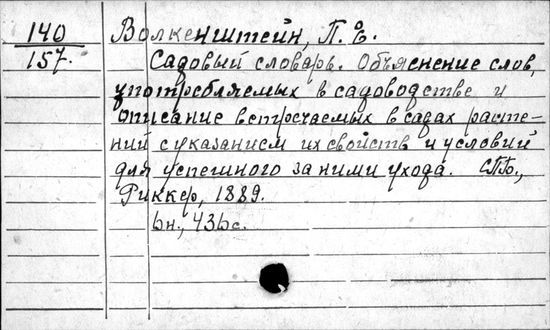 140 Волкенштейн, П. Е.
157. Садовый словарь. Объяснение слов,
употребляемых в садоводстве и
описание встречаемых в садах расте-
ний с указанием их свойств и условий
для успешного за ними ухода. СПБ.,
Риккер, 1889.
6н., 436с.